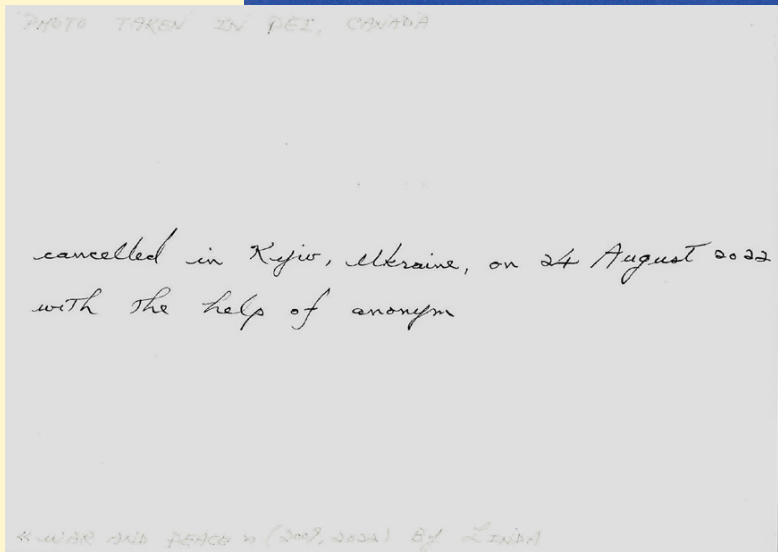 PHOTO TAKEN IN PEI, CANADA
cancelled in Kyiv, Ukraine, on 24 August 2022
with the help of anonym
« WAR AND PEACE » (2009, 2022) By LINDA